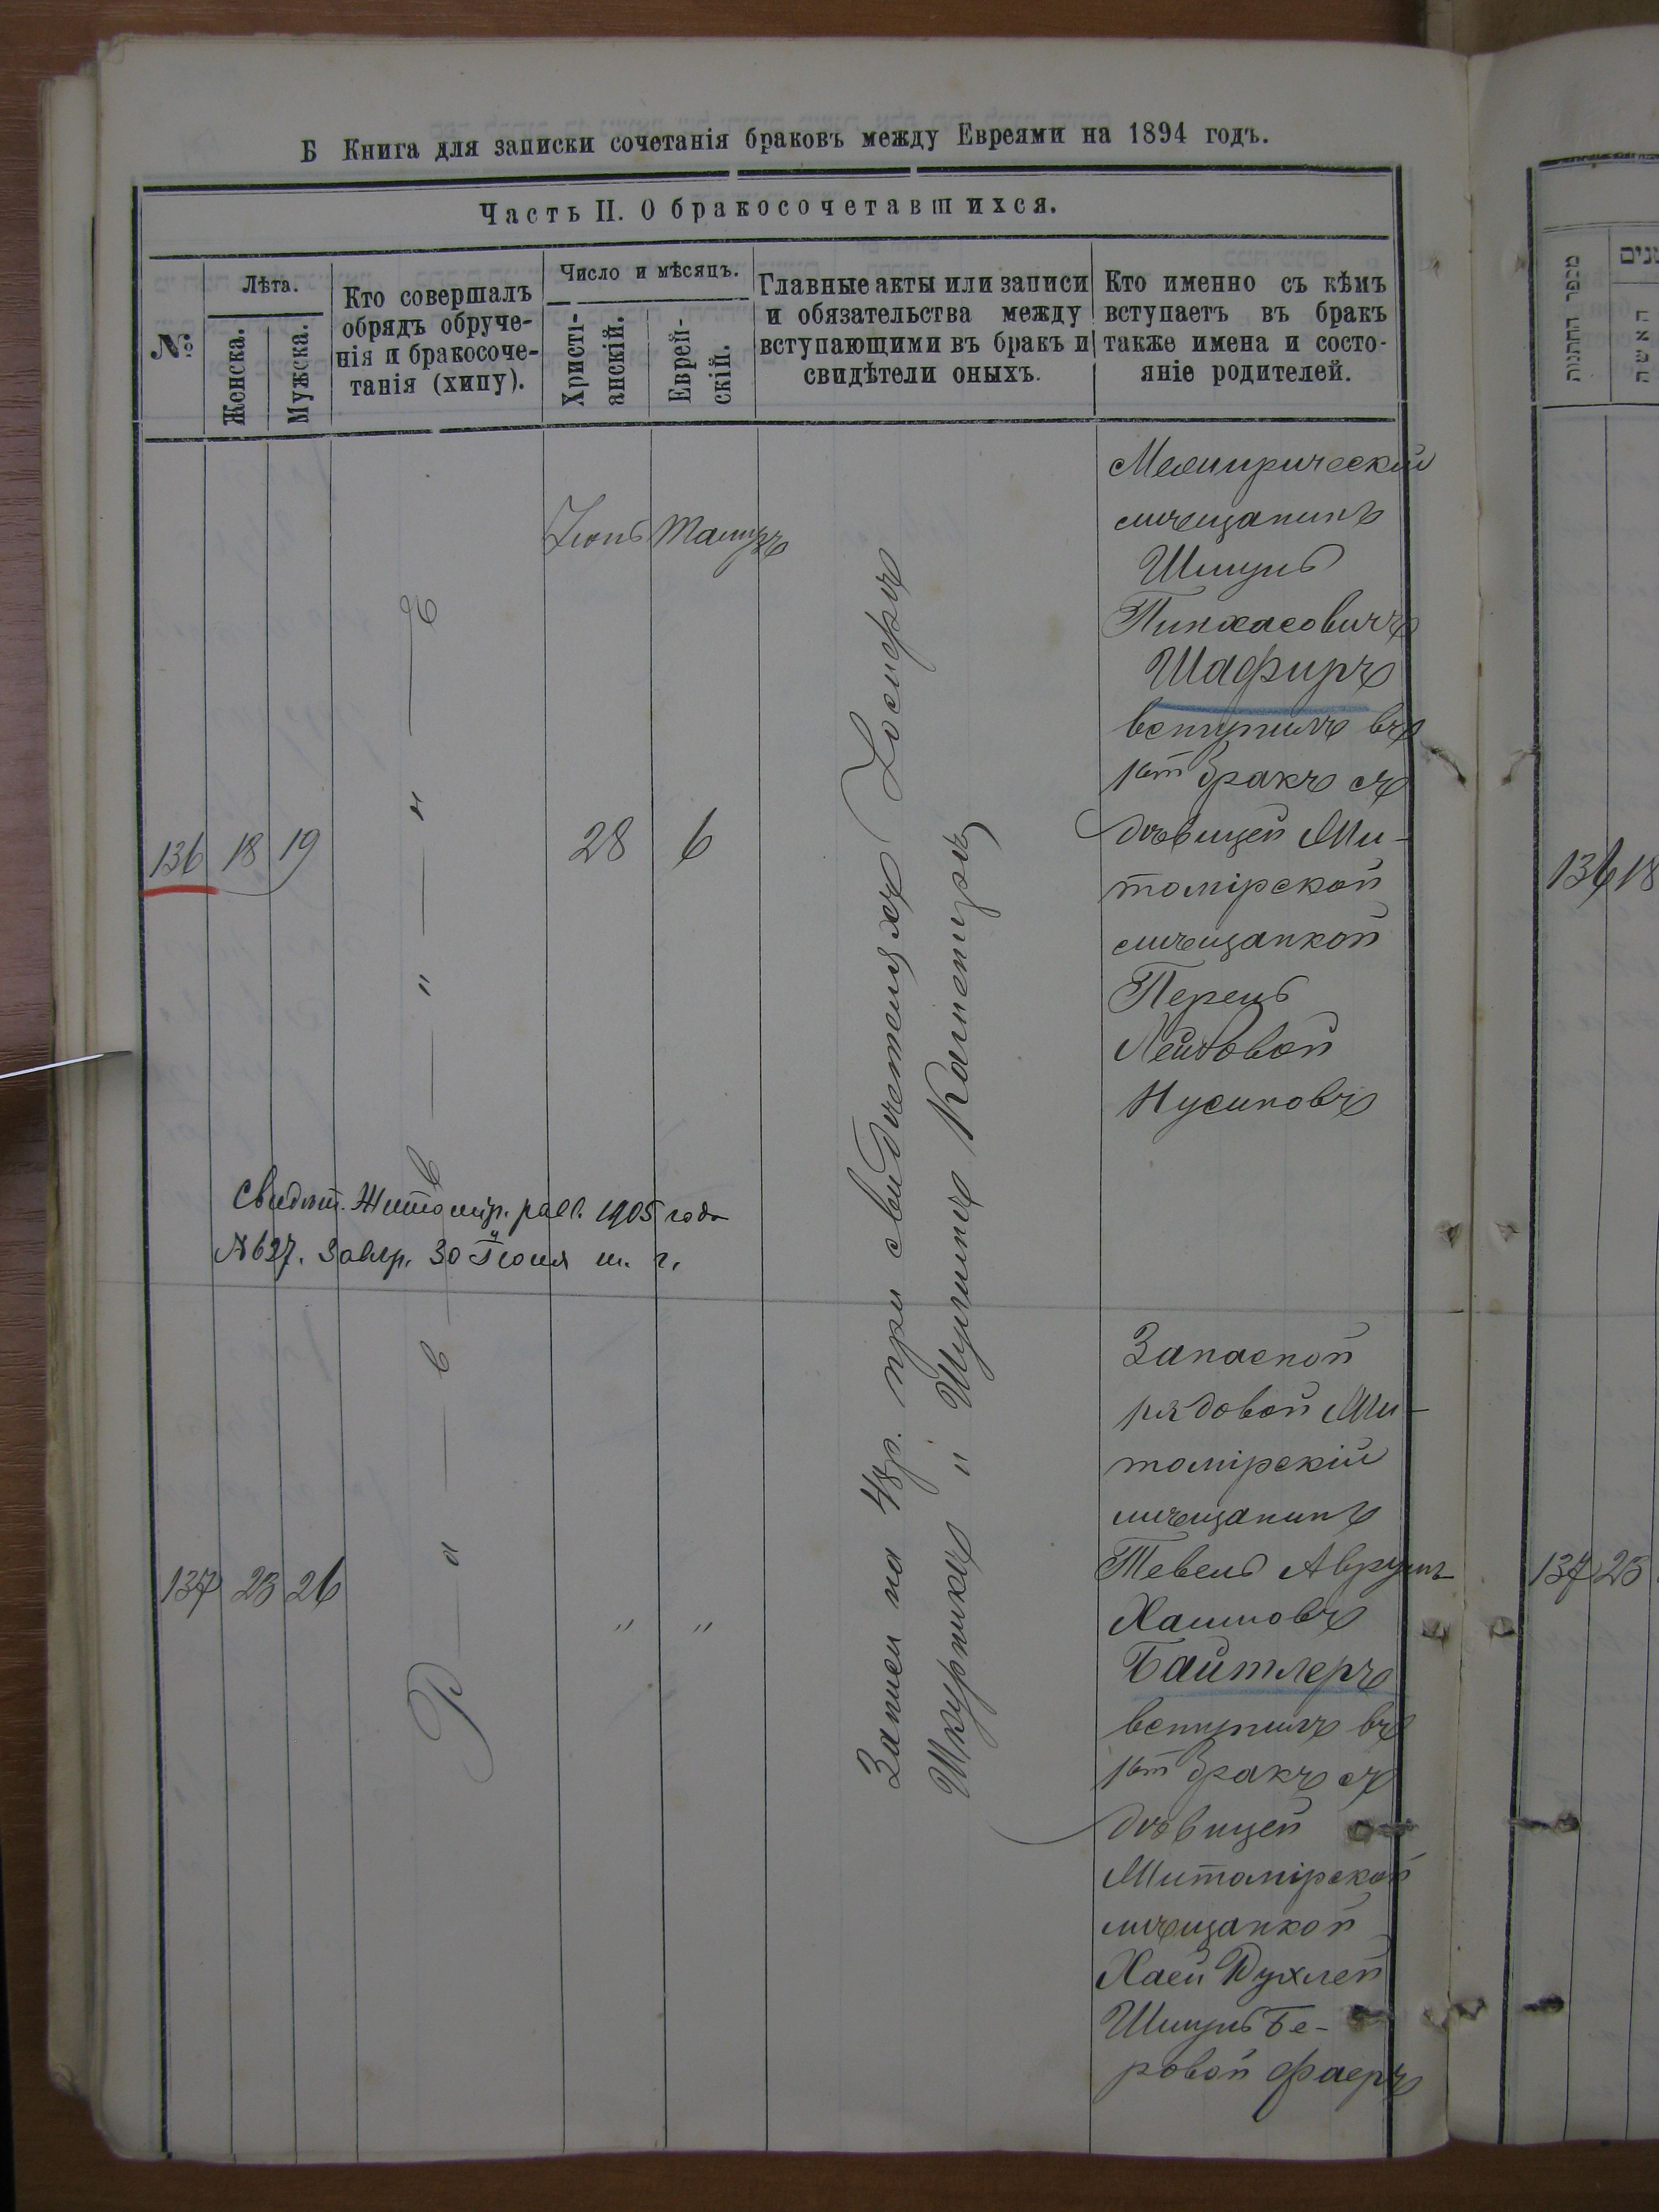 Б Книга для записки сочетанія браковъ между Евреями на 1894 годъ.
Часть II. О бракосочетавшихся.
№
Лѣта.
Женска.
Мужска.
Кто совершалъ
обрядъ обруче-
нія и бракосоче-
танія (хипу).
Число и мѣсяцъ.
Христі-
анскій.
Еврей-
скій.
Главные акты или записи
и обязательства между
вступающими въ бракъ и
свидѣтели оныхъ.
Кто именно съ кѣмъ
вступаетъ въ бракъ
также имена и состо-
яніе родителей.
136 18 19
Р а в в и н ъ
Іюнь Тамузъ
28 6
Записи на 48р. при свидѣтеляхъ
Шкурникъ и Шулимъ
мѣщанинъ
Шмуль
Пинхасовичъ
Шафиръ
вступилъ въ
1ый бракъ съ
дѣвицей Жи-
томірской
мѣщанкой
Перель
Лейбовой
Нусиновъ
Свидѣт. Житомір. равв. 1905 года
№ 627. Завѣр. 30 Іюля т. г.
137 23 26
" "
Запасной
рядовой Жи-
томірскій
мѣщанинъ
Тевель Аврумъ
Хаимовъ
Байтлеръ
вступилъ въ
1ый бракъ съ
дѣвицей
Житомірской
мѣщанкой
Хаей Рухлей
Шмуль Бе-
ровой Фаеръ
מספר החתנות
האשה
136 18
137 23